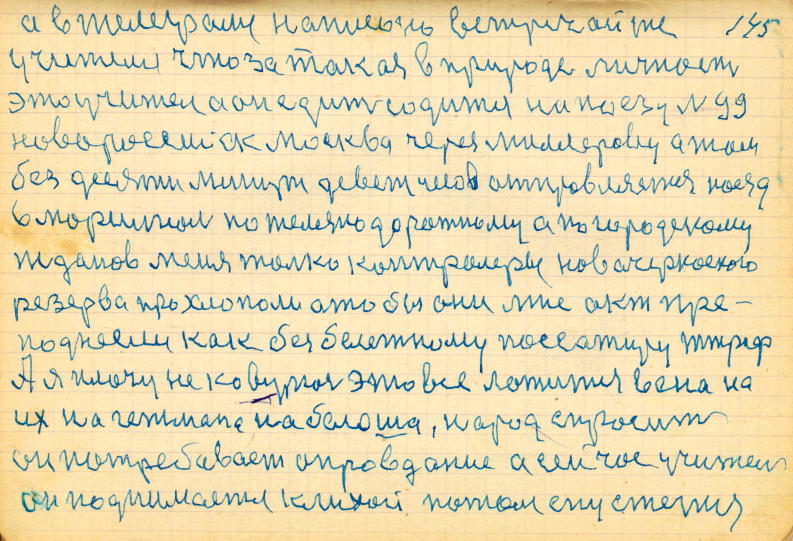 а в телеграме написоно встричайте 145
учителя что за такая в природе личност
это учител а он едит содится на поезд N 99
новоросеиск москва через миллерову а там
без десяти минут девет часов отправляятся поезд
в мориупол по желязнодорожному а по городскому
жданов меня толко контролеры новочеркоского
резерва прохлополи ато бы они мне акт пре-
поднесли как без белетному поссажиру штраф
А я плачу не ковурная это все ложится вена на
их начетмана на белоша, народ спросит
он потребавает опровдание а сейчас учител
он поднимается к лихой потом спустится